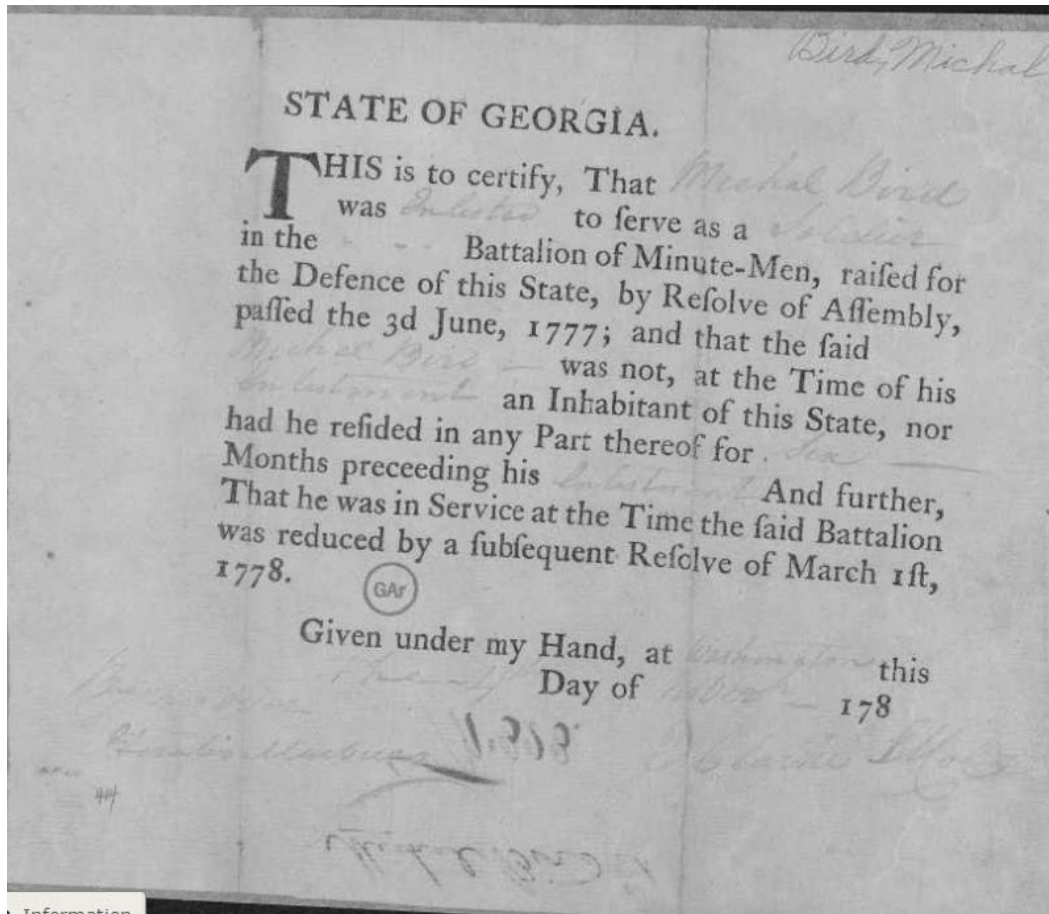 Bird, Michal
STATE OF GEORGIA.
THIS is to certify, That Michal Bird
was Inlisted to ſerve as a Soldier
in the - - - Battalion of Minute-Men, raiſed for
the Defence of this State, by Reſolve of Aſſembly,
paſſed the 3d June, 1777; and that the ſaid
Michal Bird — was not, at the Time of his
Inlistment an Inhabitant of this State, nor
had he reſided in any Part thereof for Six —
Months preceeding his Inlistment And further,
That he was in Service at the Time the ſaid Battalion
was reduced by a ſubſequent Reſolve of March 1ſt,
1778.
GAr
Given under my Hand, at Washington this
Day of 178
Horatio Marbury
414
Information